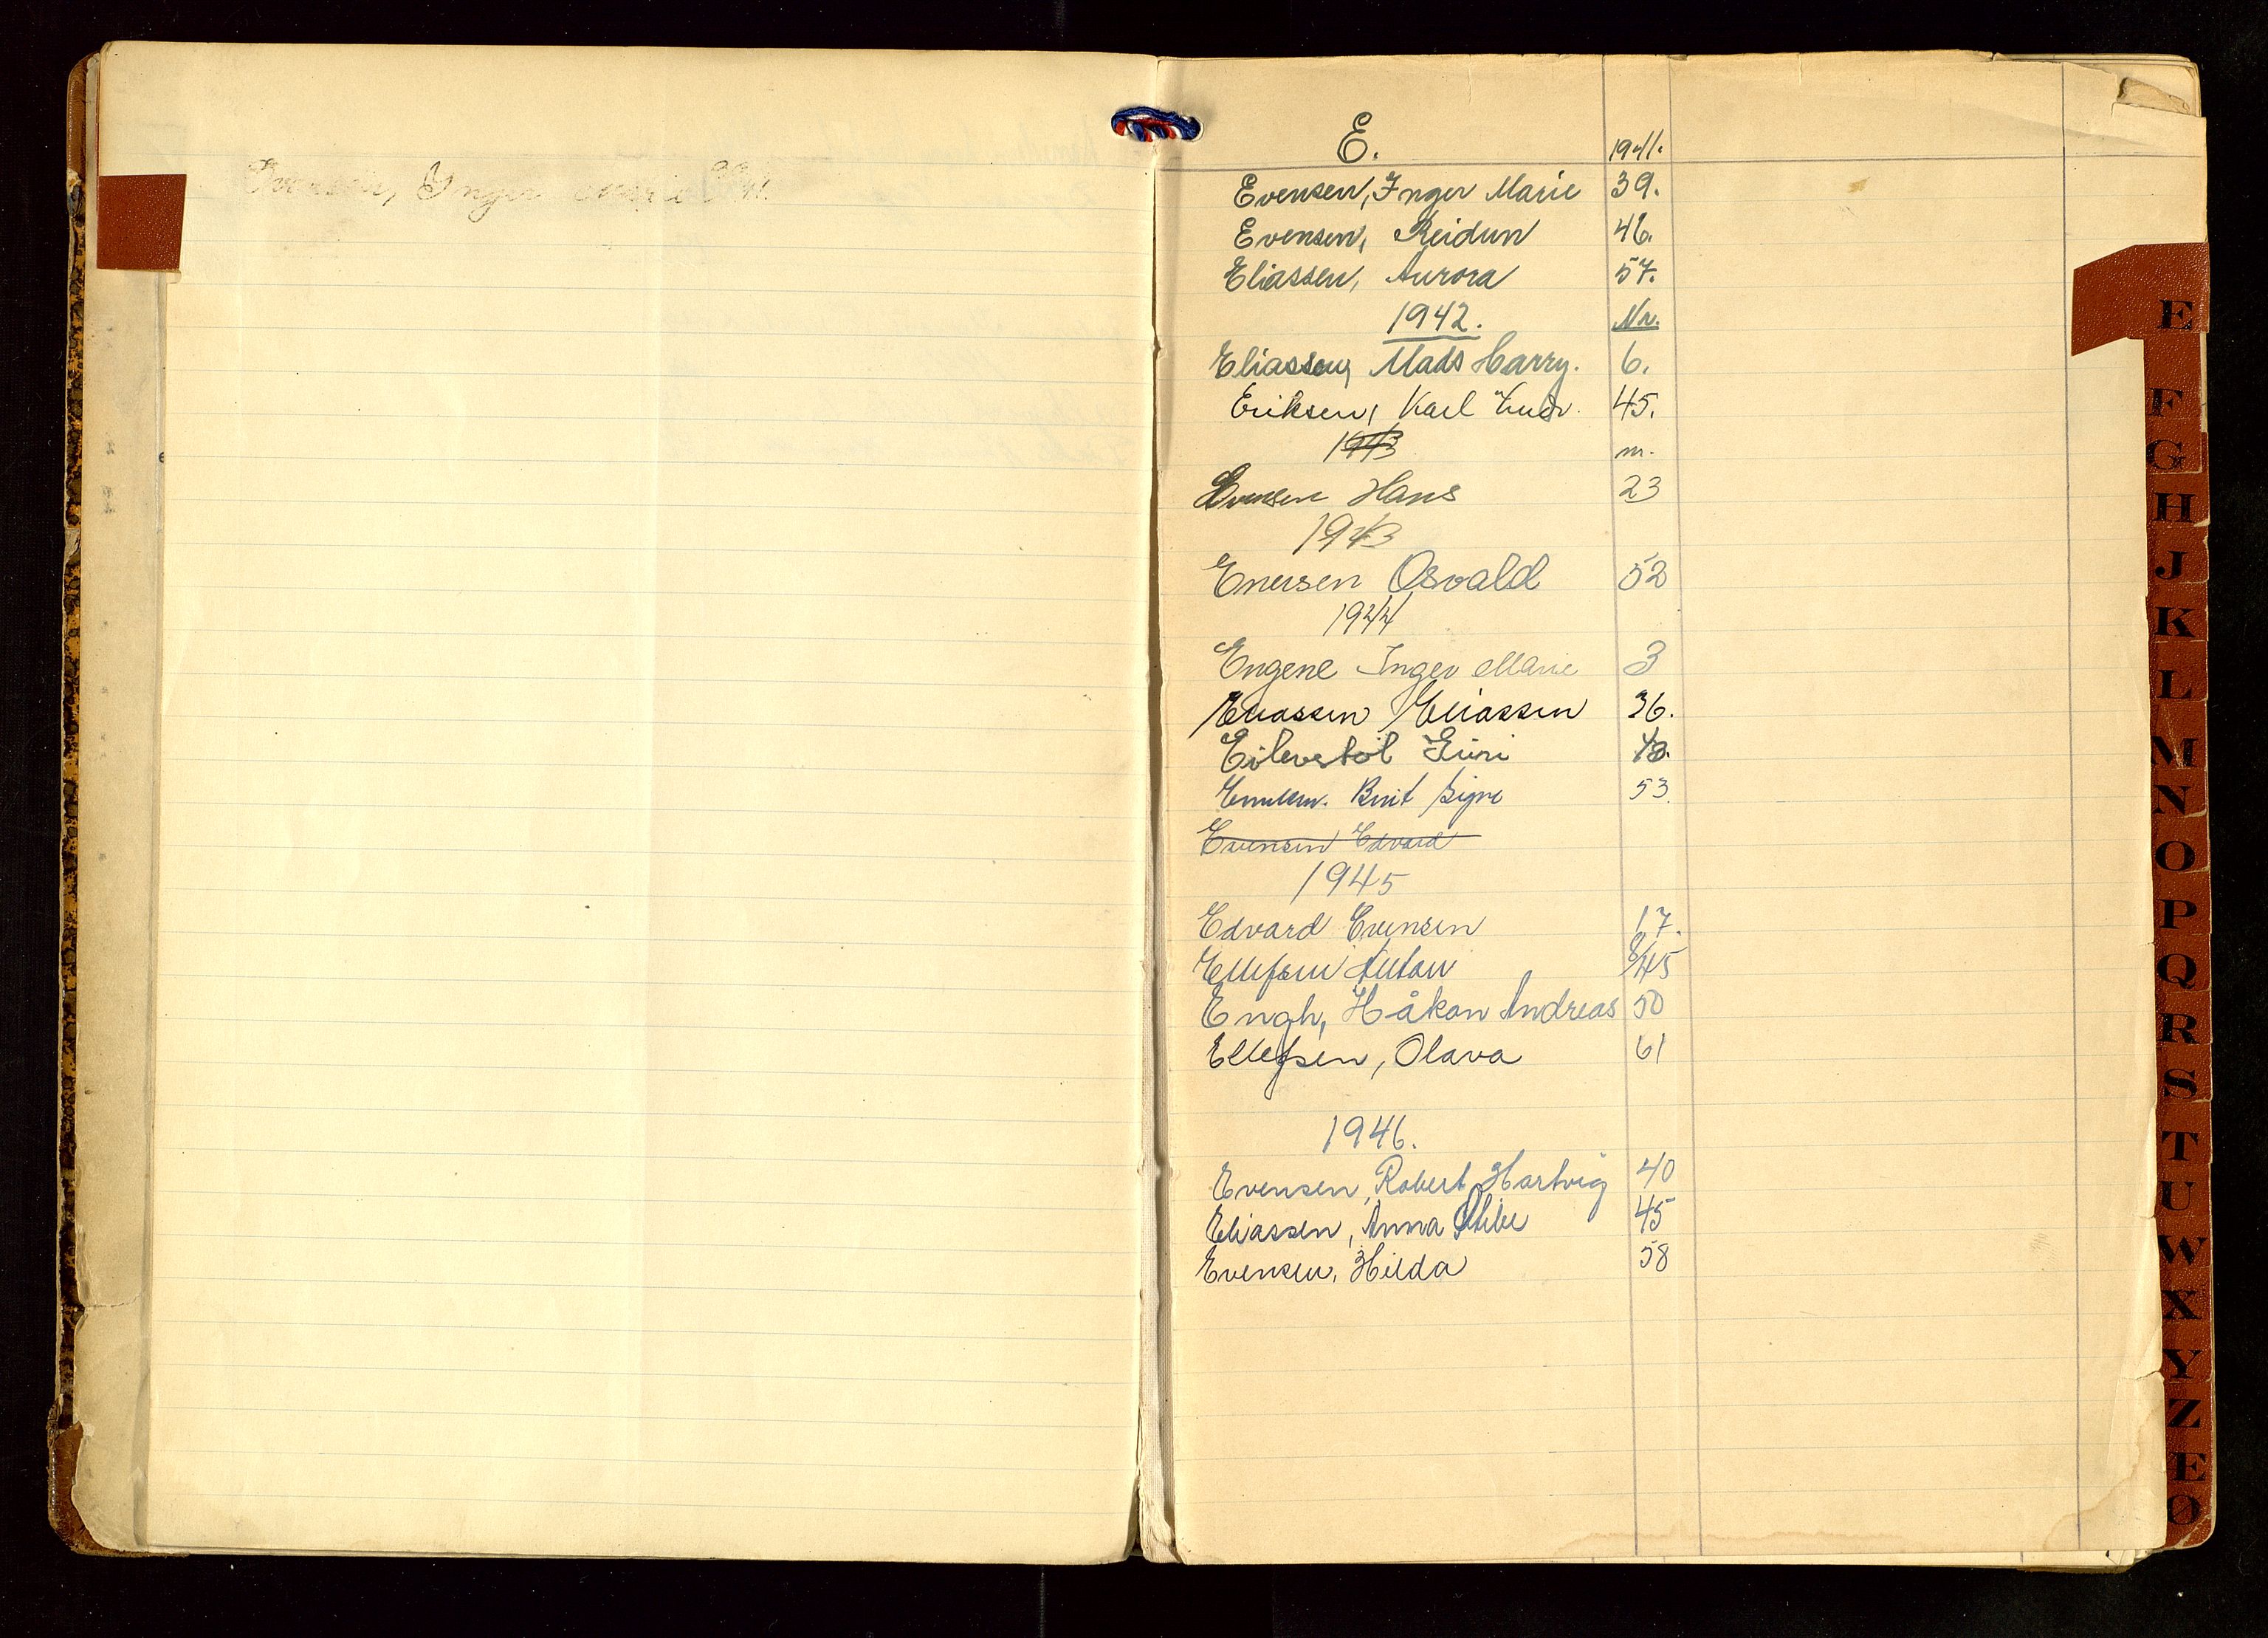 Inger Marie
E. 1941.
Evensen, Inger Marie 39.
Evensen, Reidun 46.
Eliassen, Aurora 57.
1942. Nr.
Eliassen, Mads Harry. 6.
Eriksen, Karl 45.
1943 nr.
Evensen Hans 23
1943
Enersen Osvald 52
1944
Engene Inger Marie 3
Eliassen Eliassen 36.
Eilevstøl Guri
Berit Signe 53.
Evensen Edvard
1945
Edvard Evensen 17.
Ellefsen
Engh, Håkon Andreas 50
Ellefsen, Olava 61
1946.
Evensen, Robert Hartvig 40
Eliassen, Anna 45
Evensen, Hilda 58
E
F
G
H
J
K
L
M
N
O
P
Q
R
S
T
U
W
X
Y
Z
Æ
Ø